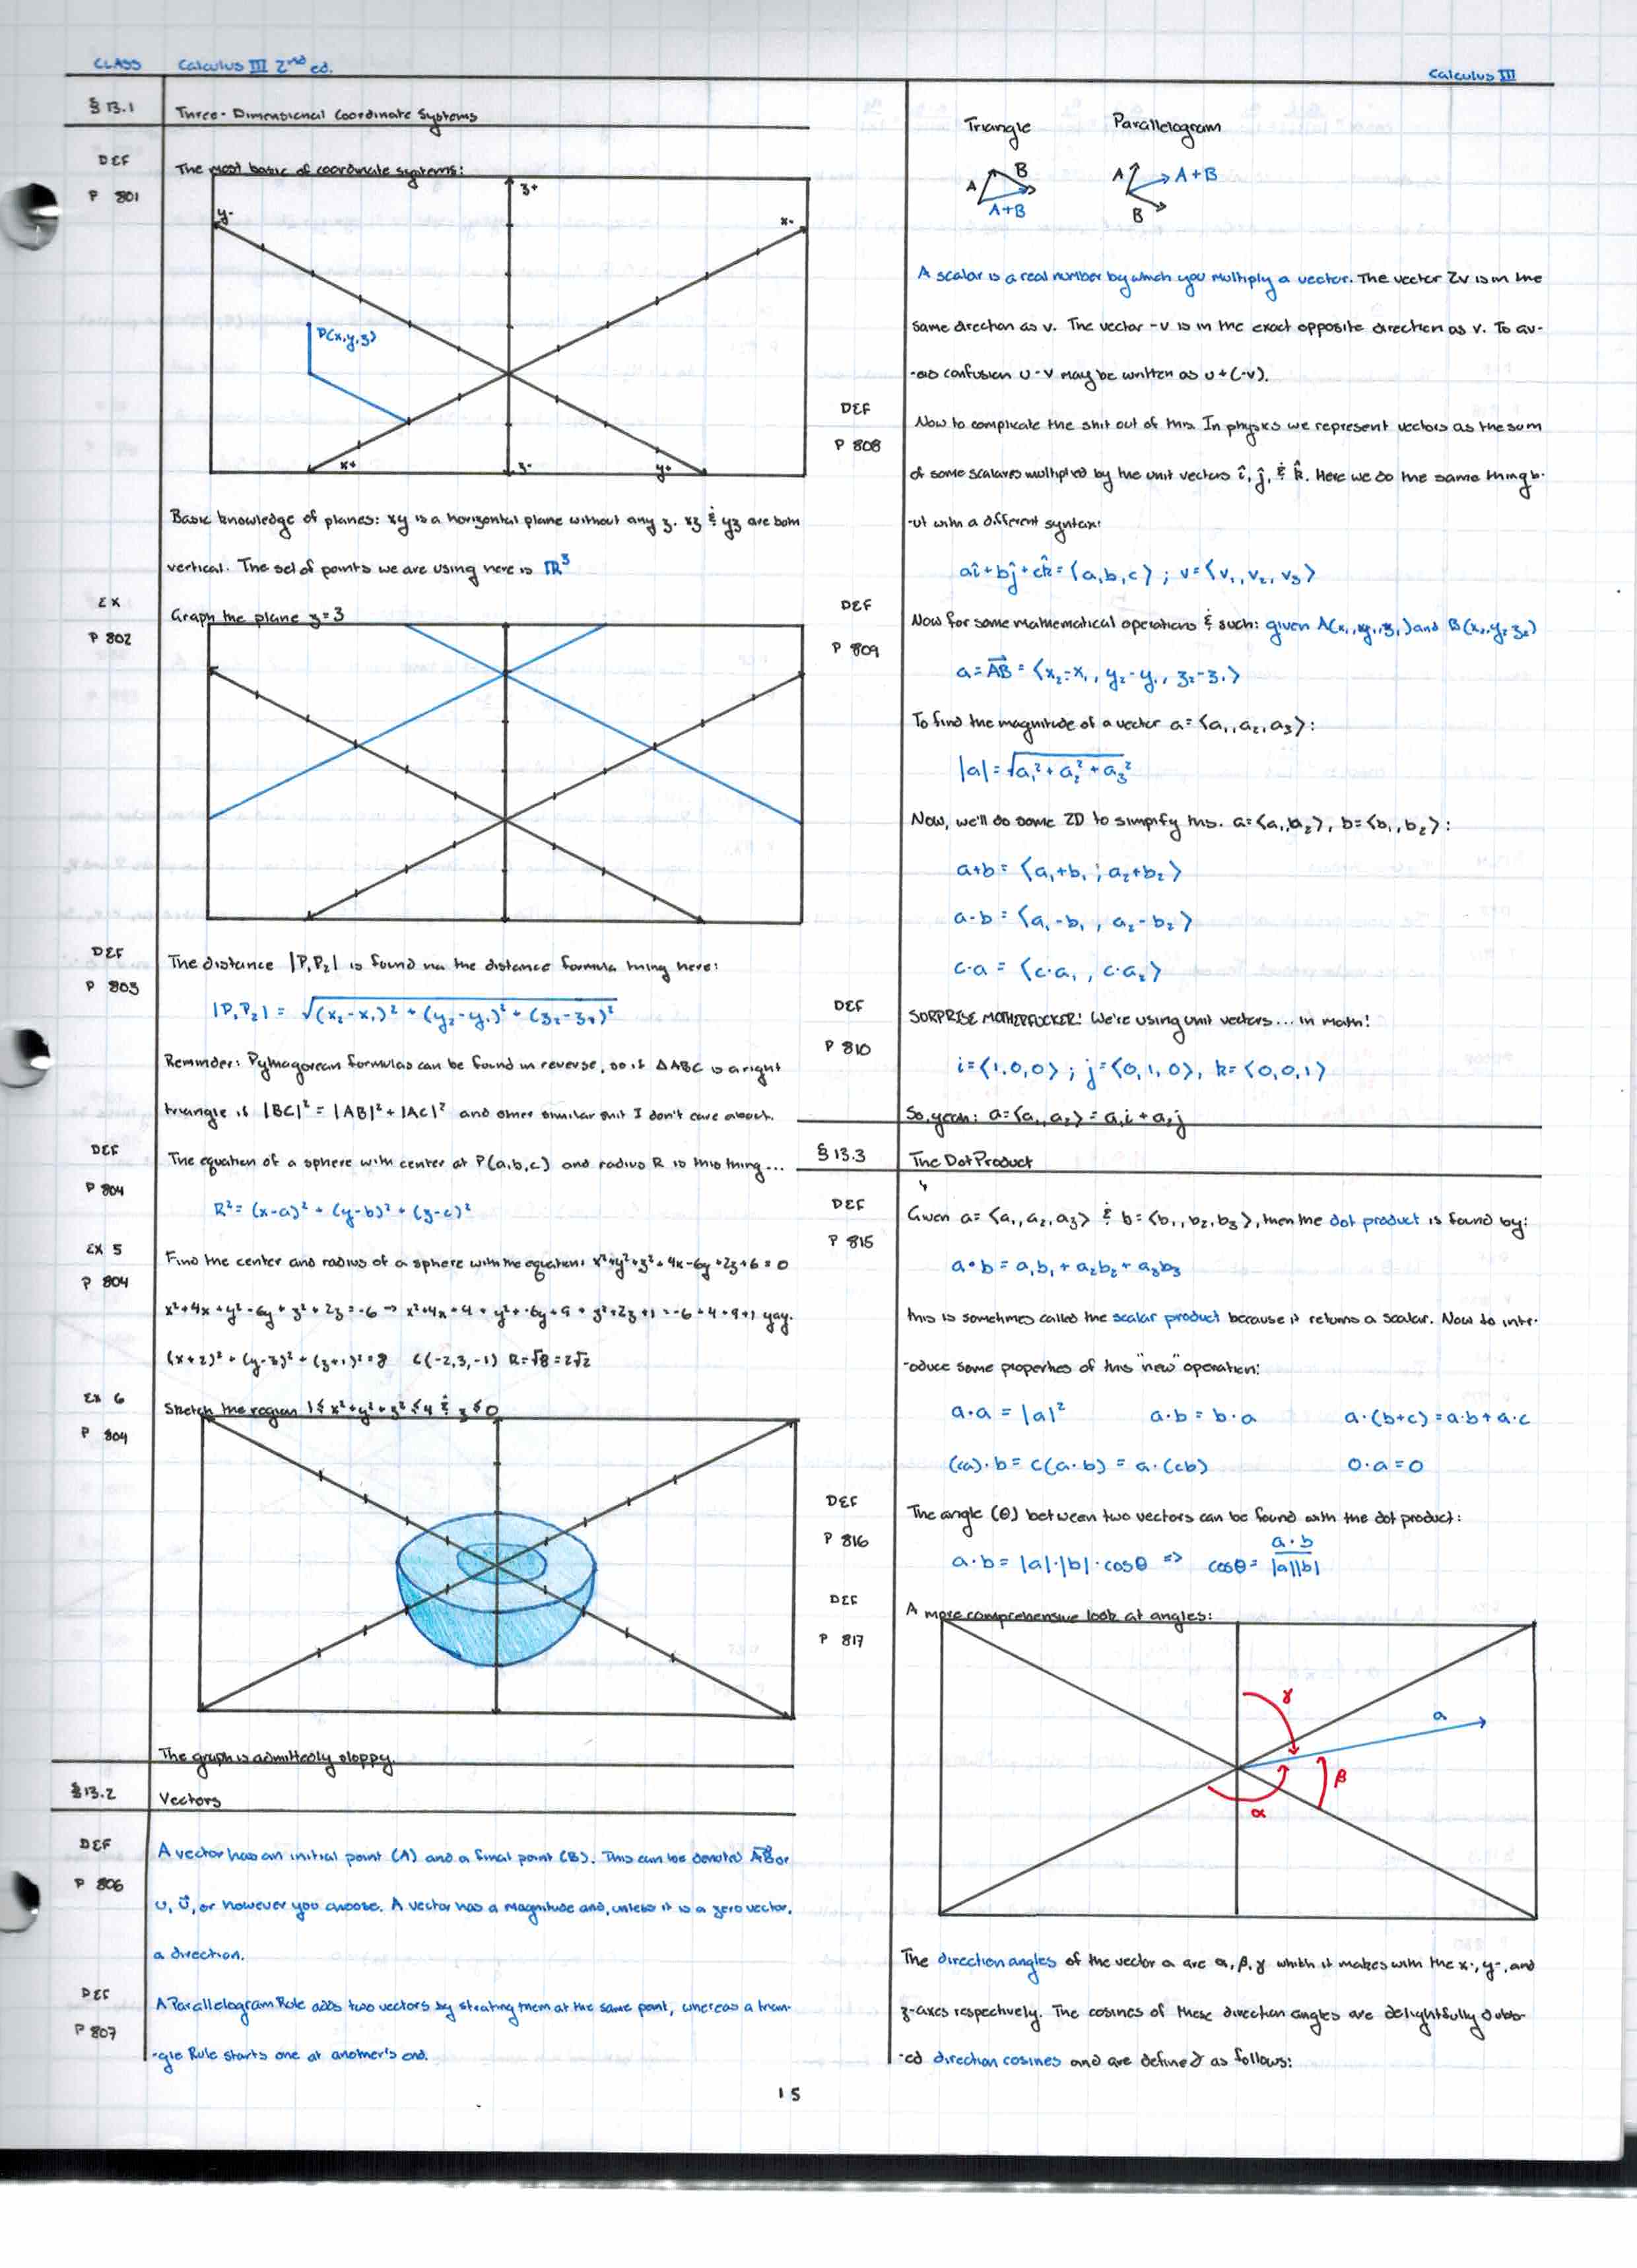 CLASS Calculus III 2nd ed.
Calculus III
§ 13.1 Three-Dimensional Coordinate Systems
DEF
P 801
The most basic of coordinate systems:
z+
y-
x-
P(x,y,z)
x+
z-
y+
Basic knowledge of planes: xy is a horizontal plane without any z. xz & yz are both
vertical. The set of points we are using here is ℝ³
EX
P 802
Graph the plane z=3
DEF
P 803
The distance |P₁P₂| is found via the distance formula thing here:
|P₁P₂| = √(x₂-x₁)² + (y₂-y₁)² + (z₂-z₁)²
Reminder: Pythagorean formulas can be found in reverse, so if ΔABC is a right
triangle if |BC|² = |AB|² + |AC|² and other similar shit I don't care about.
DEF
P 804
The equation of a sphere with center at P(a,b,c) and radius R is this thing...
R² = (x-a)² + (y-b)² + (z-c)²
EX 5
P 804
Find the center and radius of a sphere with the equation: x²+y²+z²+4x-6y+2z+6=0
x²+4x+y²-6y+z²+2z=-6 → x²+4x+4+y²+-6y+9+z²+2z+1=-6+4+9+1 yay.
(x+2)² + (y-3)² + (z+1)² = 8 C(-2,3,-1) R=√8=2√2
EX 6
P 804
Sketch the region 1≤x²+y²+z²≤4 & z≤0
The graph is admittedly sloppy.
§ 13.2 Vectors
DEF
P 806
A vector has an initial point (A) and a final point (B). This can be denoted AB or
u, u⃗, or however you choose. A vector has a magnitude and, unless it is a zero vector,
a direction.
DEF
P 807
A Parallelogram Rule adds two vectors by strating them at the same point, whereas a trian-
-gle Rule starts one at another's end.
Triangle Parallelogram
A B A+B
A B A+B
A scalar is a real number by which you multiply a vector. The vector 2v is in the
same direction as v. The vector -v is in the exact opposite direction as v. To av-
-oid confusion u-v may be written as u+(-v).
DEF
P 808
Now to complicate the shit out of this. In physics we represent vectors as the sum
of some scalares multiplied by the unit vectors î, ĵ, & k̂. Here we do the same thing b-
-ut with a different syntax:
aî+bĵ+ck̂ = ⟨a,b,c⟩ ; v=⟨v₁,v₂,v₃⟩
DEF
P 809
Now for some mathematical operations & such: given A(x₁,y₁,z₁) and B(x₂,y₂,z₂)
a = AB = ⟨x₂-x₁, y₂-y₁, z₂-z₁⟩
To find the magnitude of a vector a=⟨a₁,a₂,a₃⟩:
|a| = √a₁²+a₂²+a₃²
Now, we'll do some 2D to simplify this. a=⟨a₁,a₂⟩, b=⟨b₁,b₂⟩:
a+b = ⟨a₁+b₁; a₂+b₂⟩
a-b = ⟨a₁-b₁, a₂-b₂⟩
c·a = ⟨c·a₁, c·a₂⟩
DEF
P 810
SORPRISE MOTHERFUCKER! We're using unit vectors... in math!
i=⟨1,0,0⟩; j=⟨0,1,0⟩, k=⟨0,0,1⟩
So, yeah: a=⟨a₁,a₂⟩ = a₁i + a₂j
§ 13.3 The Dot Product
DEF
P 815
Given a=⟨a₁,a₂,a₃⟩ & b=⟨b₁,b₂,b₃⟩, then the dot product is found by:
a·b = a₁b₁ + a₂b₂ + a₃b₃
this is sometimes called the scalar product because it returns a scalar. Now to intr-
-oduce some properties of this "new" operation:
a·a = |a|² a·b = b·a a·(b+c) = a·b+a·c
(ca)·b = c(a·b) = a·(cb) 0·a=0
DEF
P 816
The angle (θ) between two vectors can be found with the dot product:
a·b = |a|·|b|·cosθ => cosθ = a·b / |a||b|
DEF
P 817
A more comprehensive look at angles:
γ
a
β
α
The direction angles of the vector a are α, β, γ which it makes with the x-, y-, and
z-axes respectively. The cosines of these direction angles are delightfully dubb-
-ed direction cosines and are defined as follows:
15